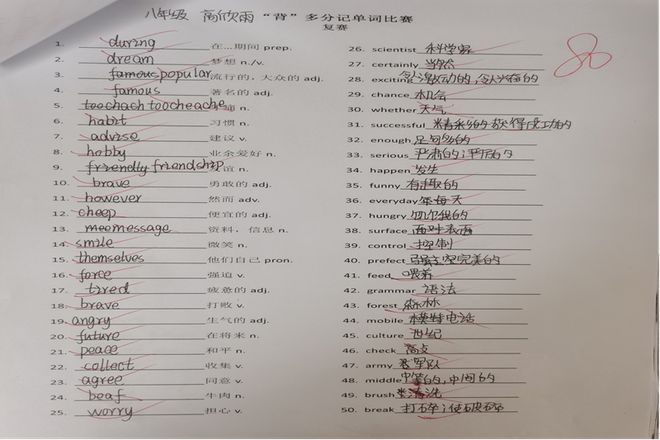 八年级 高欣雨 “背”多分记单词比赛
复赛
1. during 在...期间 prep.
2. dream 梦想 n./v.
3. famous popular 流行的，大众的 adj.
4. famous 著名的 adj.
5. toochach toocheache 牙痛 n.
6. habit 习惯 n.
7. advise 建议 v.
8. hobby 业余爱好 n.
9. friendly friendship 友谊 n.
10. brave 勇敢的 adj.
11. however 然而 adv.
12. cheep 便宜的 adj.
13. mee message 资料，信息 n.
14. smile 微笑 n.
15. themselves 他们自己 pron.
16. force 强迫 v.
17. tired 疲意的 adj.
18. brave 打败 v.
19. angry 生气的 adj.
20. future 在将来 n.
21. peace 和平 n.
22. collect 收集 v.
23. agree 同意 v.
24. beaf 牛肉 n.
25. worry 担心 v.
26. scientist 科学家
27. certainly 当然
28. exciting 令人激动的，令人兴奋的
29. chance 机会
30. whether 天气
31. successful 精彩的 获得成功的
32. enough 足够多的
33. serious 严肃的；严厉的
34. happen 发生
35. funny 有趣的
36. everyday 每天
37. hungry 饥饿的
38. surface 面对 表面
39. control 控制
40. prefect 完美的
41. feed 喂养
42. grammar 语法
43. forest 森林
44. mobile 模特 电话
45. culture 世纪
46. check
47. army 军队
48. middle 中等的，中间的
49. brush 清洗
50. break 打碎；使破碎
80